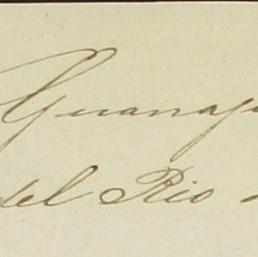 Guanaju
del Rio